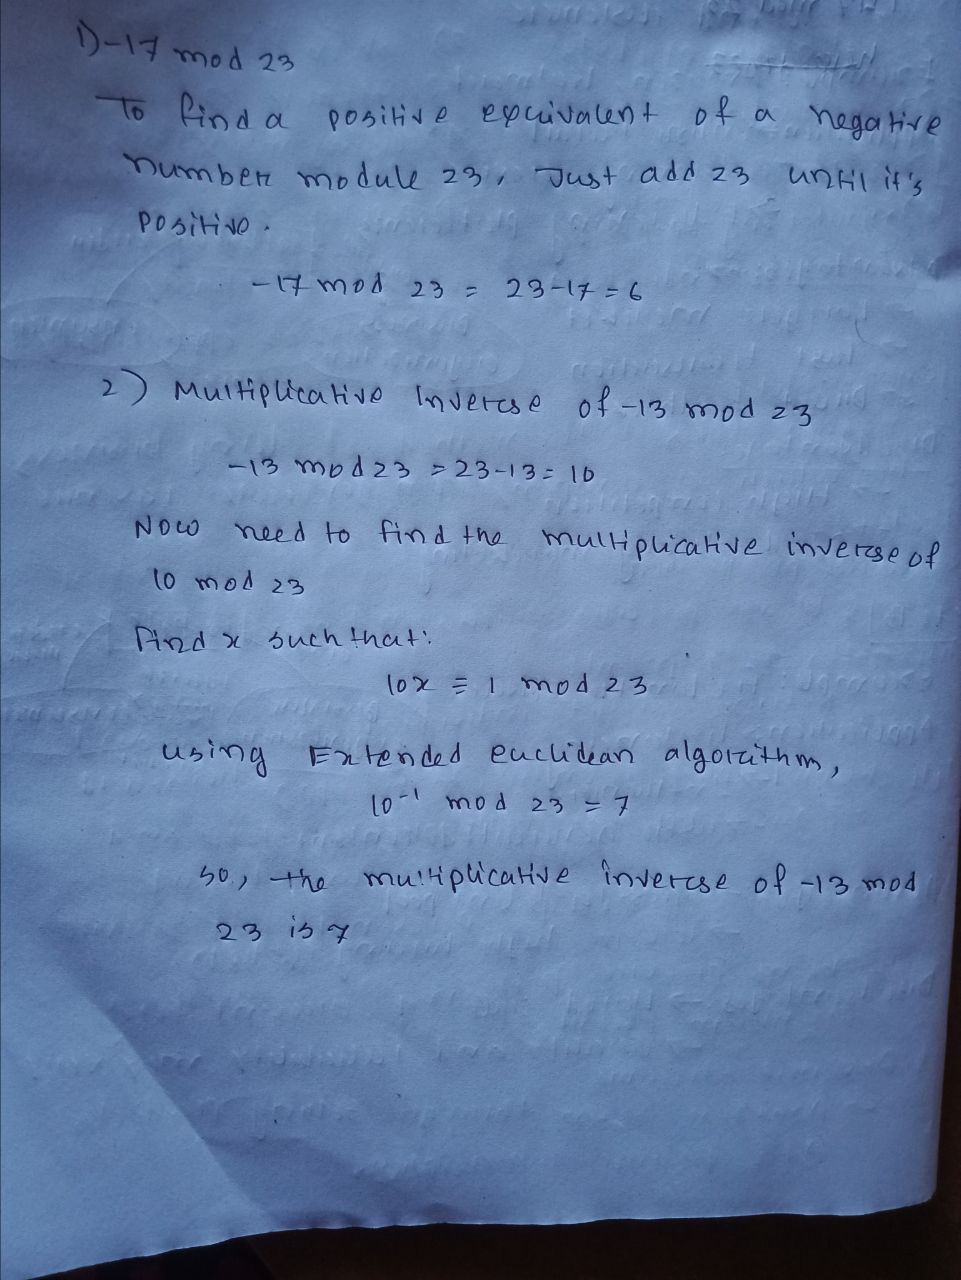 1) -17 mod 23
To find a positive equivalent of a negative
number module 23, Just add 23 until it's
positive.
-17 mod 23 = 23-17 = 6
2) Multiplicative Inverse of -13 mod 23
-13 mod 23 = 23-13 = 10
Now need to find the multiplicative inverse of
10 mod 23
Find x such that:
10x ≡ 1 mod 23
using Extended euclidean algorithm,
10⁻¹ mod 23 = 7
so, the multiplicative inverse of -13 mod
23 is 7